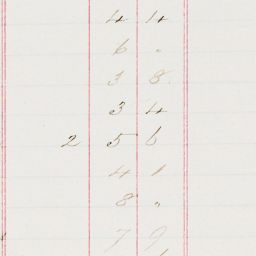 4 4
6 "
3 8
3 4
2 5 6
4 1
8 "
7 9